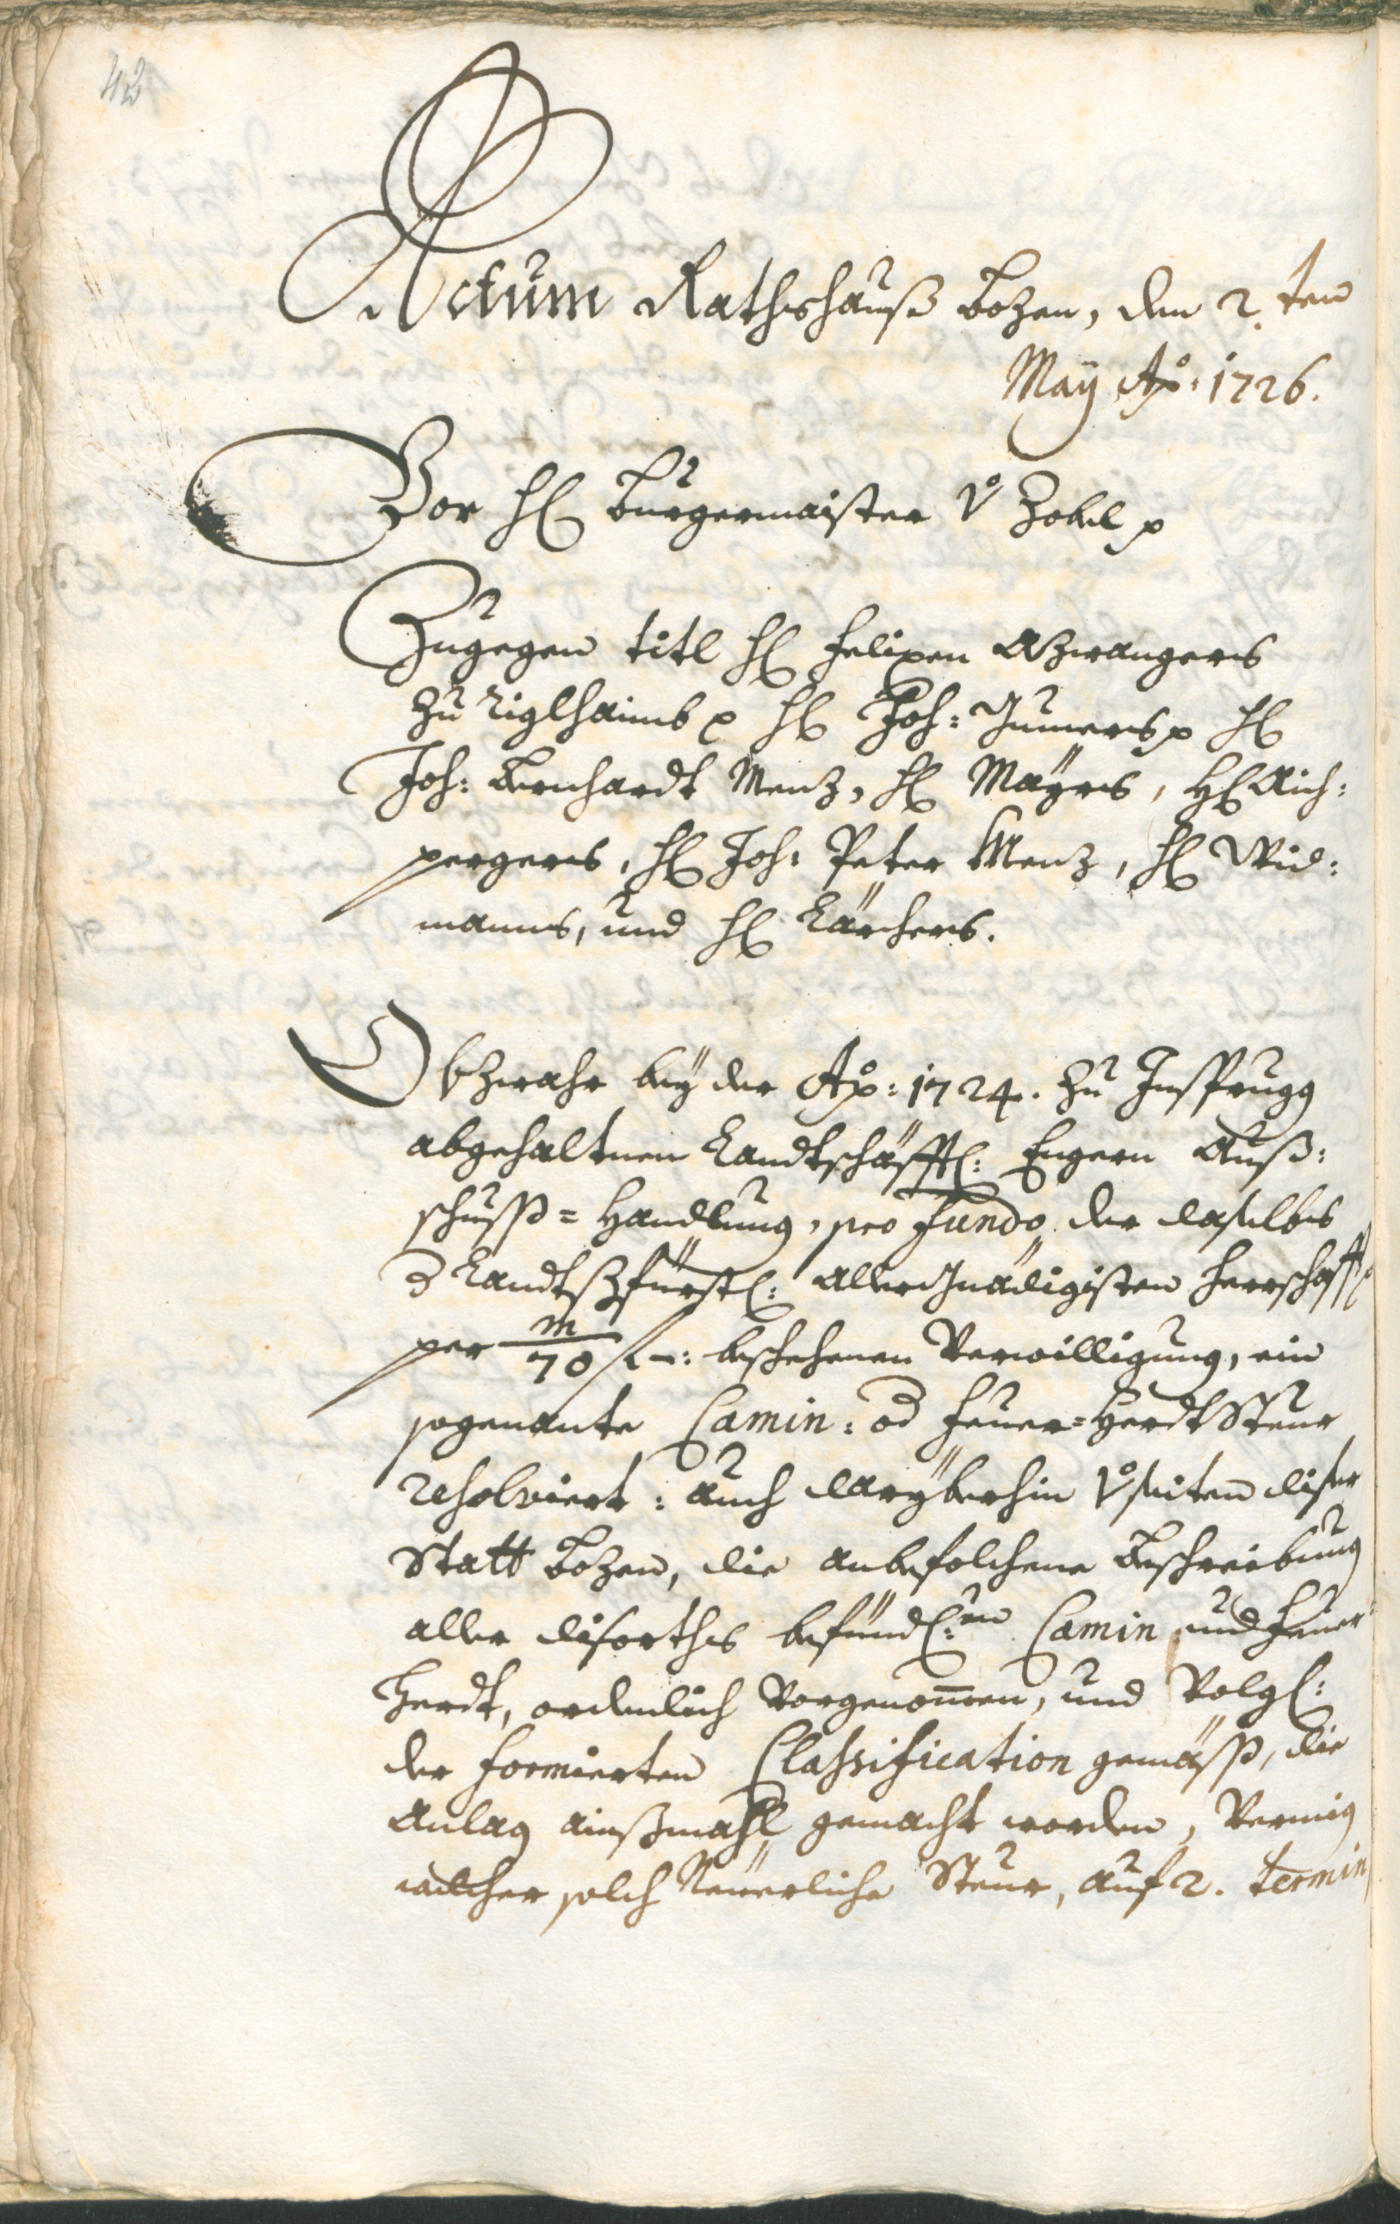 42
Actum Rathshauß Bozen, den 2.ten
May Ao: 1726.
Vor H: Burgermaister v Zobel p
Zugegen titl H: Felixen Azwangers
zu Riglhaimb p H: Joh: Gumers p H:
Joh: Bernhardt Menz, H: Mayrs, H: Aich:
pergers, H: Joh: Peter Menz, H: Wid:
manns, und H: Kärchers.
Obzwahr bey der Ao: 1724. zu Insprugg
abgehaltnen Landtschäfftl: Engern Auß:
schuss=Handlung, pro fundo der daselbs
d Landtsfürstl: allergnädigisten Herrschafft
per m/70 f –: beschehenen Verwilligung, ein
sogenante Camin: od Feuer=Herdt Steur
resolviert: auch daryberhin v seiten diser
Statt Bozen, die anbefolchene Beschreibung
aller diserorths befündl:en Camin und Feuer
Herdt, ordenlich vorgenomen, und volgl:
der formierten Classification gemäss, die
Anlag ainßmahl gemacht worden, Vermig
welcher solch Neuerliche Steur, auf 2. termin